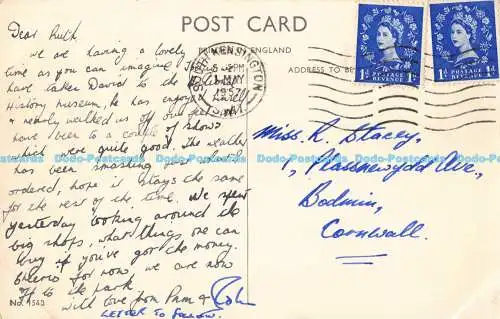 POST CARD
PRINTED IN ENGLAND
ADDRESS TO BE
SOUTH KENSINGTON
5-PM
1 MAY
1957
S.W.7
1d POSTAGE REVENUE 1d
1d POSTAGE REVENUE 1d
Dear Ruth
We are having a lovely
time as you can imagine
have taken David to the
History Museum, he has enjoyed himself
& nearly walked us off our feet
have been to a couple of shows
which were quite good. The weather
has been smashing
ordered, hope it stays the same
for the rest of the time. We spent
yesterday looking around the
big shops, what things one can
buy if you've got the money.
Cheerio for now, we are now
off to the park
With love from Pam & Rob
LETTER TO FOLLOW.
No. 1563
Miss R Stacey,
1, Plassnewydd Ave.,
Bodmin,
Cornwall.
Dodo-Postcards Dodo-Postcards Dodo-Postcards Dodo-Postcards